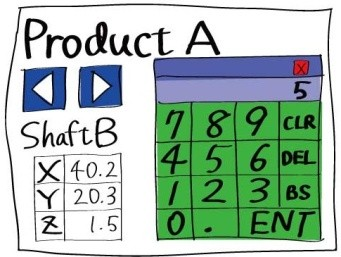 Product A
ShaftB
X 40.2
Y 20.3
Z 1.5
X
5
7 8 9 CLR
4 5 6 DEL
1 2 3 BS
0 . ENT